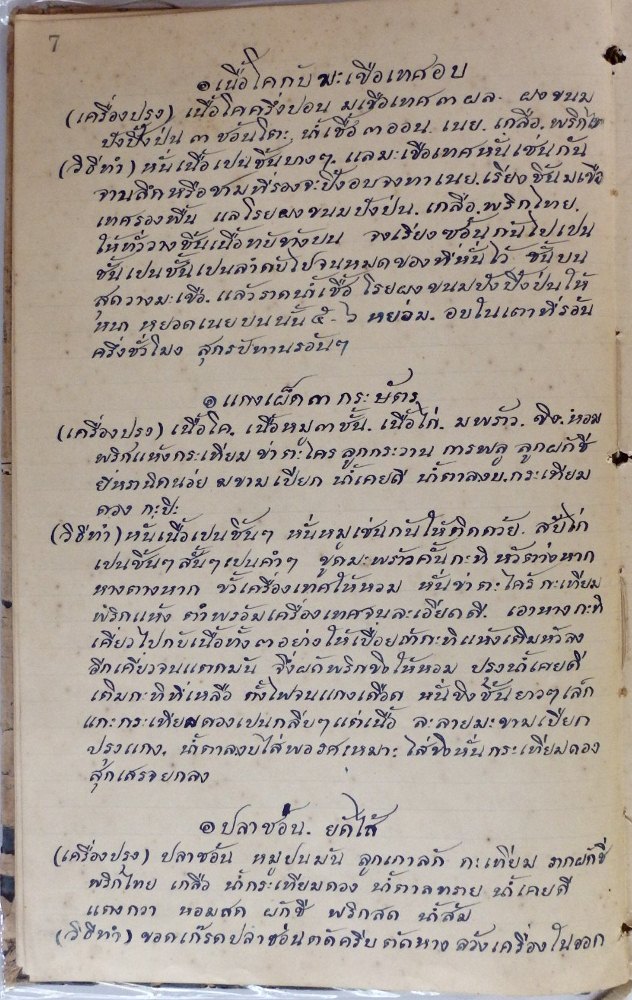 7
๑ เนื้อโคกับมะเขือเทศอบ
(เครื่องปรุง) เนื้อโคครึ่งปอน มเขือเทศ ๓ ผล. ผงขนม
ปังปิ้งป่น ๓ ชอันโตะ น้ำเชื้อ ๓ ออน. เนย. เกลือ. พริกไทย
(วิธีทำ) หั่นเนื้อเปนชิ้นบางๆ. แลมะเขือเทศหั่นเช่นกัน
จานลึกหรือชามที่รองจะปิ้งอบจงทาเนย. เรียงชิ้นมเขือ
เทศรองพื้น แลโรยผงขนมปังป่น. เกลือ. พริกไทย.
ให้ทั่ววางชิ้นเนื้อทับข้างบน จงเรียงซอันกันไปเปน
ชั้นเปนชั้นเปนลำดับไปจนหมดของที่หั่นไว้ ชั้นบน
สุดวางมะเขือ. แล้วราดน้ำเชื้อ โรยผงขนมปังปิ้งป่นให้
หนา หยอดเนยบนนั้น ๕ - ๖ หย่อม. อบในเตาที่รอัน
ครึ่งชั่วโมง สุกรปทานรอันๆ
๑ แกงเผ็ด ๓ กระษัตร
(เครื่องปรุง) เนื้อโค. เนื้อหมู ๓ ชั้น. เนื้อไก่. มพร้าว. ขิง. หอม
พริกแห้งกระเทียม ข่า ตะไคร ลูกกระวาน กานพลู ลูกผักชี
ยี่หรานิดน่อย มขามเปียก น้ำเคยดี น้ำตาลงบ. กระเทียม
ดอง กะปิ
(วิธีทำ) หั่นเนื้อเปนชิ้นๆ หั่นหมูเช่นกันให้ติดด้วย. สับไก่
เปนชิ้นๆ สั้นๆ เปนคำๆ ขูดมะพร้าวคั้นกะทิ หัวต่างหาก
หางต่างหาก ขั้วเครื่องเทศให้หอม หั่นข่า ตะไคร้ กะเทียม
พริกแห้ง ตำพรอัมเครื่องเทศจนละเอียดดี. เอาหางกะทิ
เคี่ยวไปกับเนื้อทั้ง ๓ อย่างให้เปื่อยถ้ากะทิแห้งเติมหัวลง
อีกเคี่ยวจนแตกมัน จึ่งผัดพริกขิงให้หอม ปรุงน้ำเคยดี
เติมกะทิที่เหลือ ตั้งไฟจนแกงเดือด หั่นขิงชิ้นยาวๆ เล็ก
แกะกระเทียมดองเปนกลีบๆ แต่เนื้อ ละลายมะขามเปียก
ปรุงแกง. น้ำตาลงบใส่พอรศเหมาะ ใส่ขิงหั่นกระเทียมดอง
สุกเสรจยกลง
๑ ปลาชอัน. ยัดไส้
(เครื่องปรุง) ปลาชอัน หมูปนมัน ลูกเกาลัด กะเทียม รากผักชี
พริกไทย เกลือ น้ำกระเทียมดอง น้ำตาลทราย น้ำเคยดี
แตงกวา หอมสด ผักชี พริกสด น้ำส้ม
(วิธีทำ) ขอดเกร็ดปลาช่อนตัดครีบ ตัดหาง ล้วงเครื่องในออก